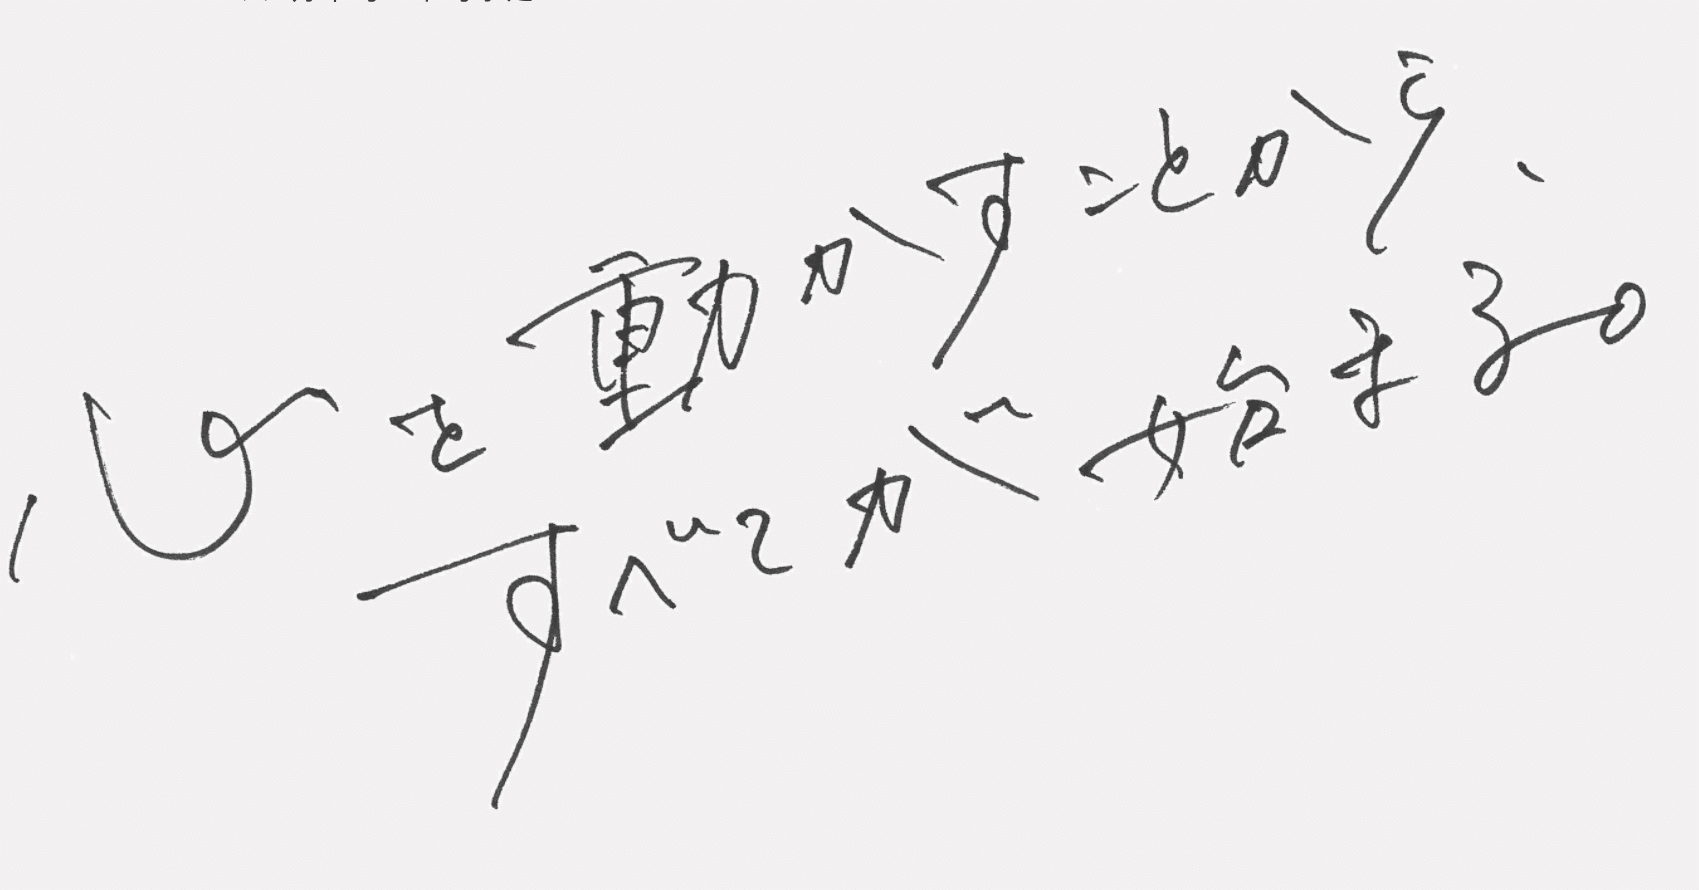 心を動かすことから、
すべてが始まる。